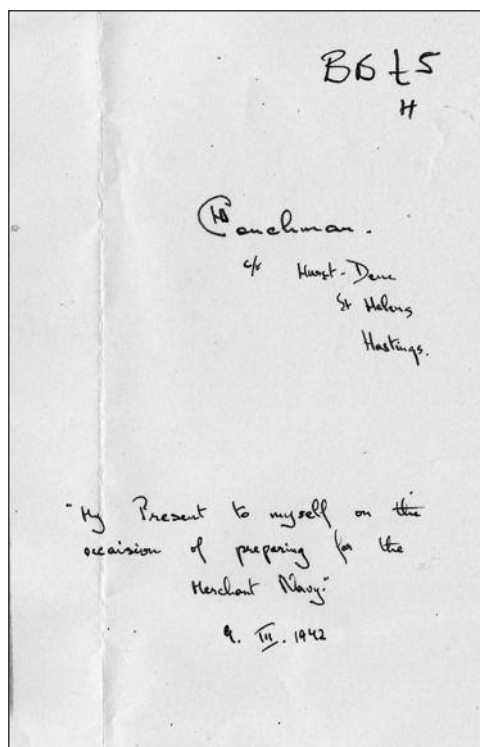 BB £5
H
Couchman.
c/o Hurst-Dene
St Helens
Hastings.
"My Present to myself on the
occaision of preparing for the
Merchant Navy."
9. III. 1942